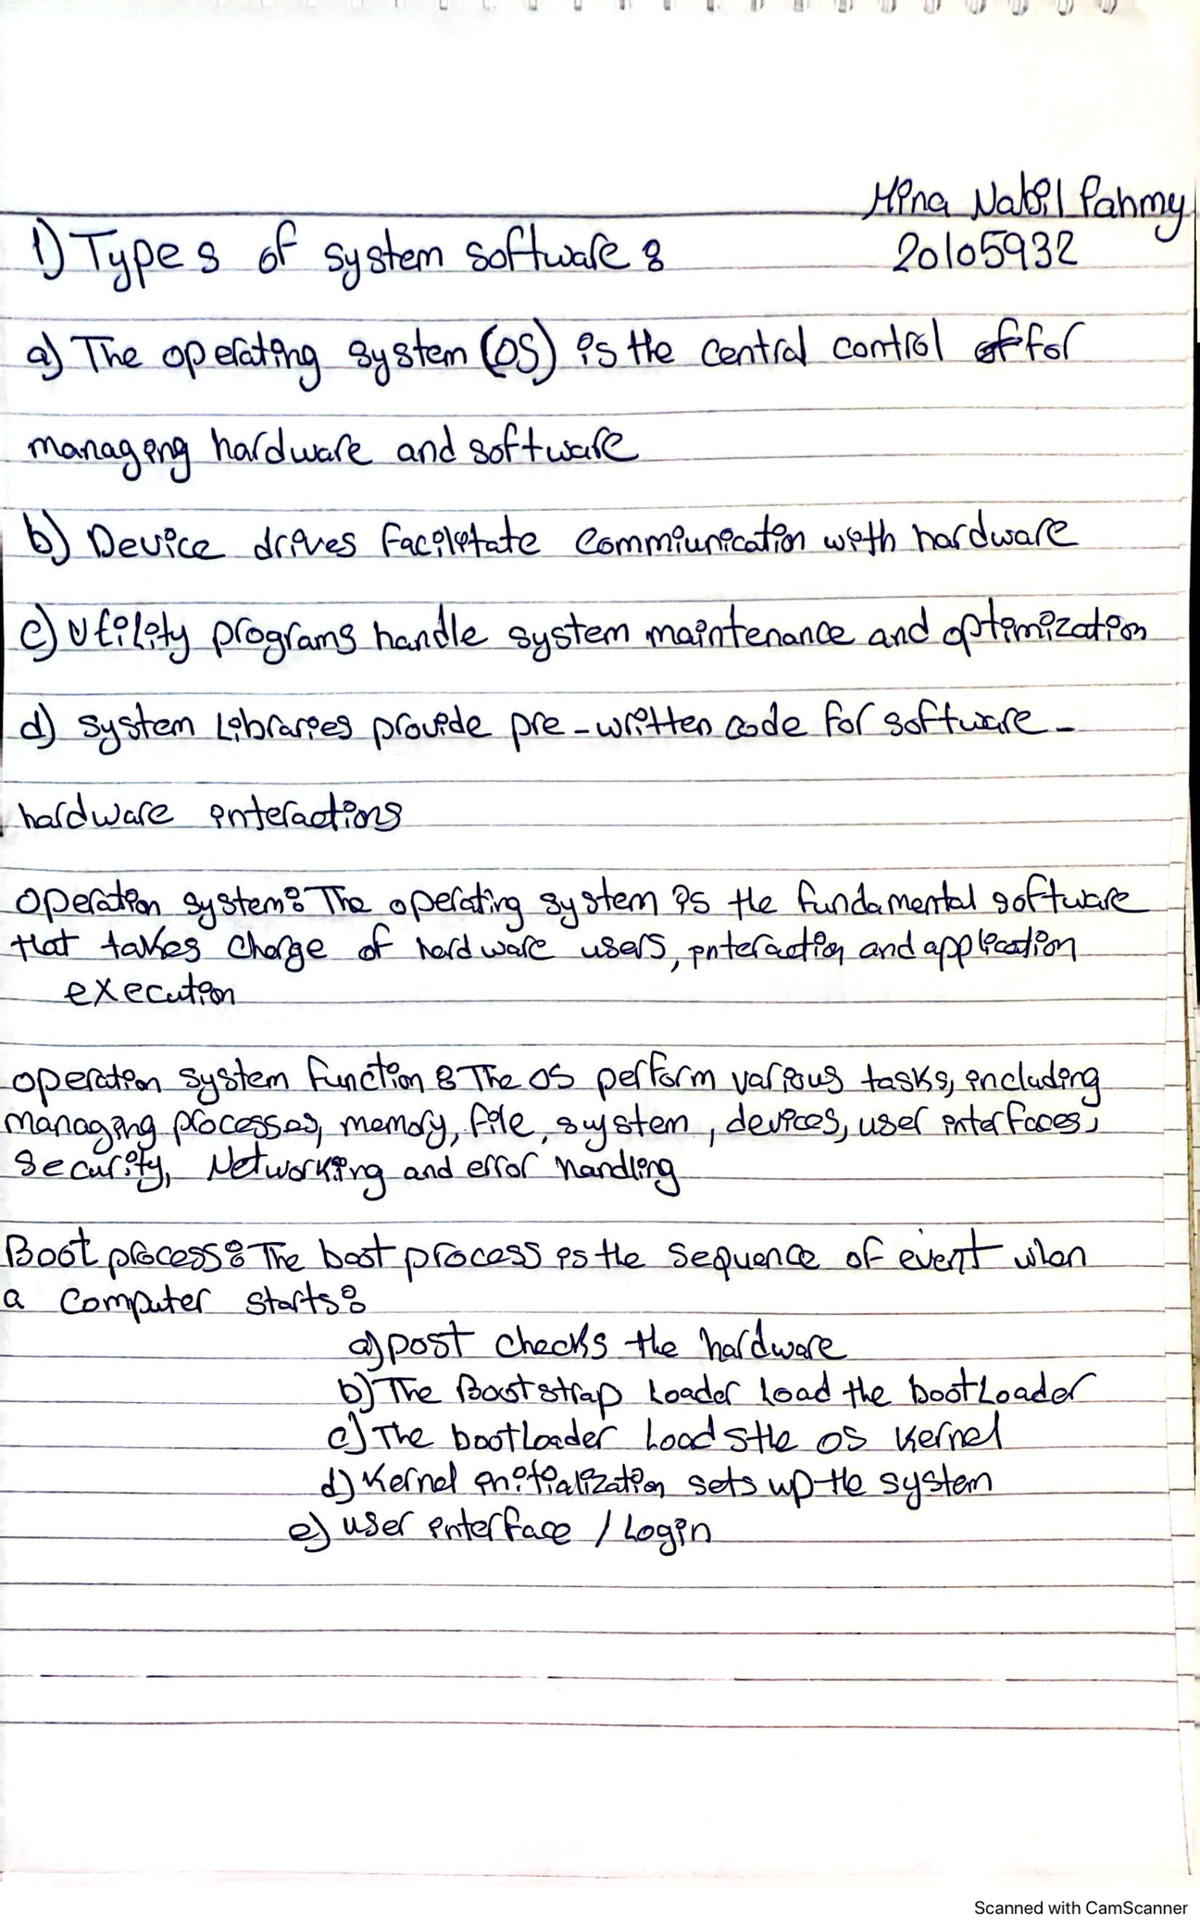 Mina Nabil Fahmy
20105932
1) Types of system software :
a) The operating system (OS) is the central control of for
managing hardware and software
b) Device drives facilitate commiunication with hardware
c) Utility programs handle system maintenance and optimization
d) system Libraries provide pre-written code for software-
hardware interactions
operation system: The operating system is the fundamental software
that takes charge of hardware users, interaction and application
execution
operation system function : The OS perform various tasks, including
managing processes, memory, file, system, devices, user interfaces,
security, Networking and error handling
Boot process: The boot process is the sequence of event when
a computer starts:
a) post checks the hardware
b) The Bootstrap Loader Load the bootLoader
c) The bootLoader Loads the OS Kernel
d) Kernel initialization sets up the system
e) user interface / Login
Scanned with CamScanner